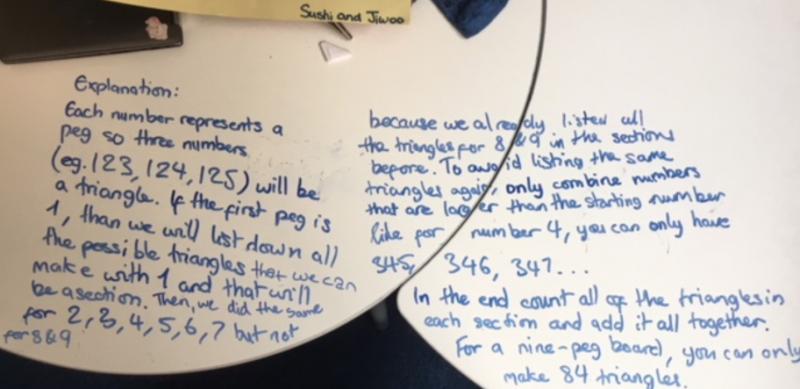 Sushi and Jiwoo
Explanation:
Each number represents a
peg so three numbers
(eg. 123, 124, 125) will be
a triangle. If the first peg is
1, than we will list down all
the possible triangles that we can
make with 1 and that will
be a section. Then, we did the same
for 2, 3, 4, 5, 6, 7 but not
for 8 & 9
because we already listed all
the triangles for 8 & 9 in the sections
before. To avoid listing the same
triangles again, only combine numbers
that are larger than the starting number
like for number 4, you can only have
345, 346, 347...
In the end count all of the triangles in
each section and add it all together.
For a nine-peg board, you can only
make 84 triangles.